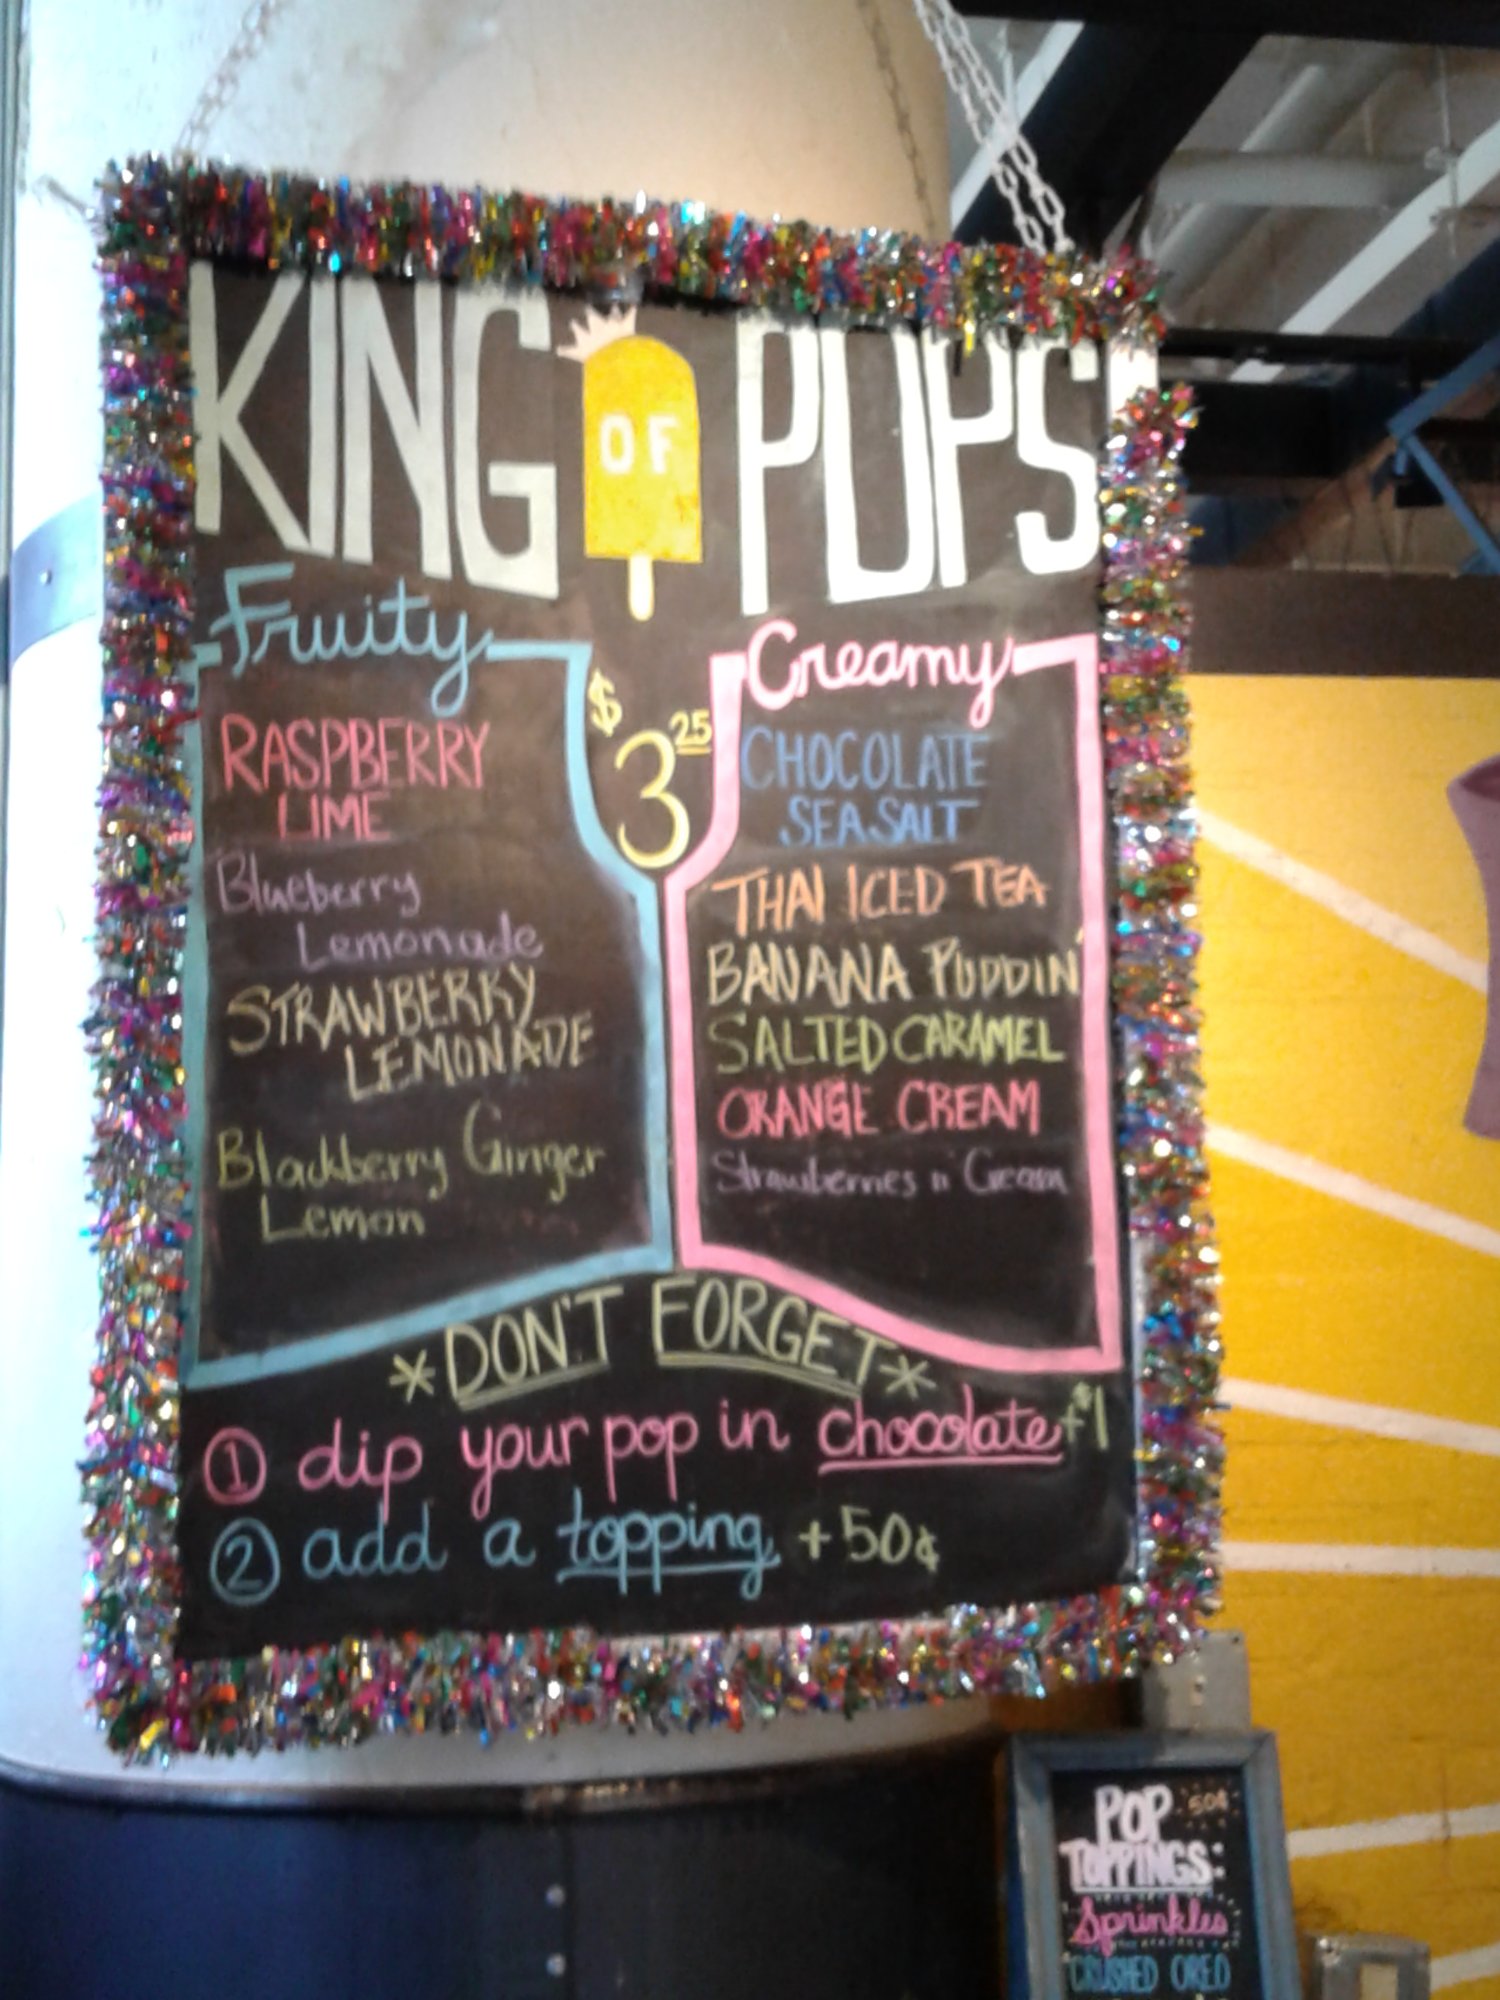 KING OF POPS
Fruity
RASPBERRY
LIME
Blueberry
Lemonade
STRAWBERRY
LEMONADE
Blackberry Ginger
Lemon
$3.25
Creamy
CHOCOLATE
SEA SALT
THAI ICED TEA
BANANA PUDDIN'
SALTED CARAMEL
ORANGE CREAM
Strawberries n' Cream
*DON'T FORGET*
1 dip your pop in chocolate +$1
2 add a topping +50¢
POP 50¢
TOPPINGS:
Sprinkles
CRUSHED OREO